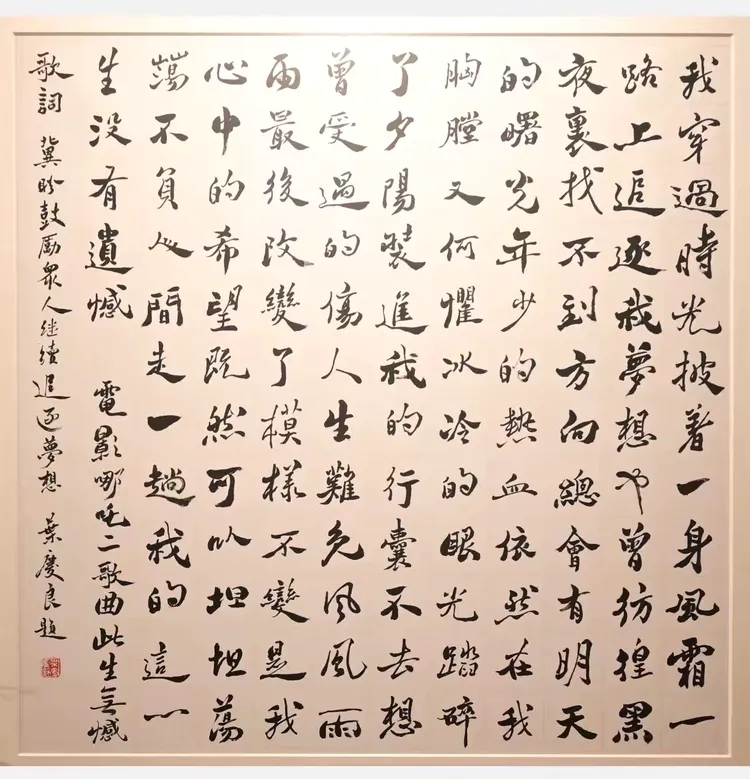 我穿過時光披着一身風霜一
路上追逐我夢想也曾彷徨黑
夜裏找不到方向總會有明天
的曙光年少的熱血依然在我
胸膛又何懼冰冷的眼光踏碎
了夕陽裝進我的行囊不去想
曾受過的傷人生難免風風雨
雨最後改變了模樣不變是我
心中的希望既然可以坦坦蕩
蕩不負人間走一趟我的這一
生沒有遺憾
電影哪吒二歌曲此生無憾
歌詞冀盼鼓勵眾人继續追逐夢想 葉慶良題